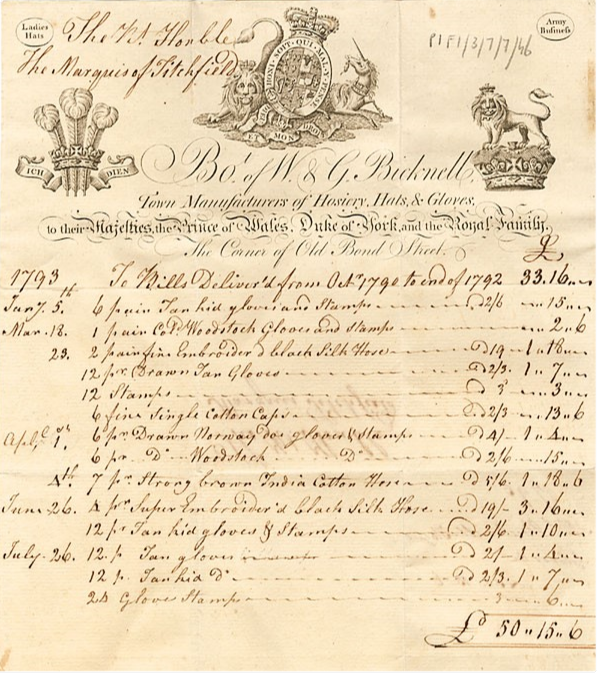 Ladies
Hats
Army
Business
The Rt. Honble
The Marquis of Titchfield
P1F1/3/7/7/46
HONI SOIT QUI MAL Y PENSE
DIEU ET MON DROIT
ICH DIEN
Bot. of W. & G. Bicknell,
Town Manufacturers of Hosiery, Hats, & Gloves,
to their Majesties, the Prince of Wales, Duke of York, and the Royal Family,
The Corner of Old Bond Street.
£
1793 To Bills Deliver'd from Octr. 1790 to end of 1792 33.16 "
Jany. 5th. 6 pair Tan kid gloves and Stamps 2/6 " 15 "
Mar. 18. 1 pair Cold. Woodstock Gloves and Stamps " 2 " 6
23. 2 pair fine Embroider'd black Silk Hose 19 1 " 18 "
12 pr. Drawn Tan Gloves 2/3. 1 " 7 "
12 Stamps 3 " 3 "
6 fine Single Cotton Caps 2/3 " 13 " 6
Apl. 1. 6 pr. Drawn Norway doe gloves & Stamps 4/ 1 " 4 "
6 pr. Do. Woodstock Do. 2/6 " 15 "
4th. 7 pr. Strong brown India Cotton Hose 5/6 1 " 18 " 6
June 26. 4 pr. Super Embroider'd black Silk Hose 19/ 3 " 16 "
12 pr. Tan kid gloves & Stamps 2/6 1 " 10 "
July 26. 12 p. Tan gloves 2/ 1 " 4 "
12 p. Tan kid Do. 2/3. 1 " 7 "
24 Glove Stamps 3 " 6 "
£ 50 " 15 " 6